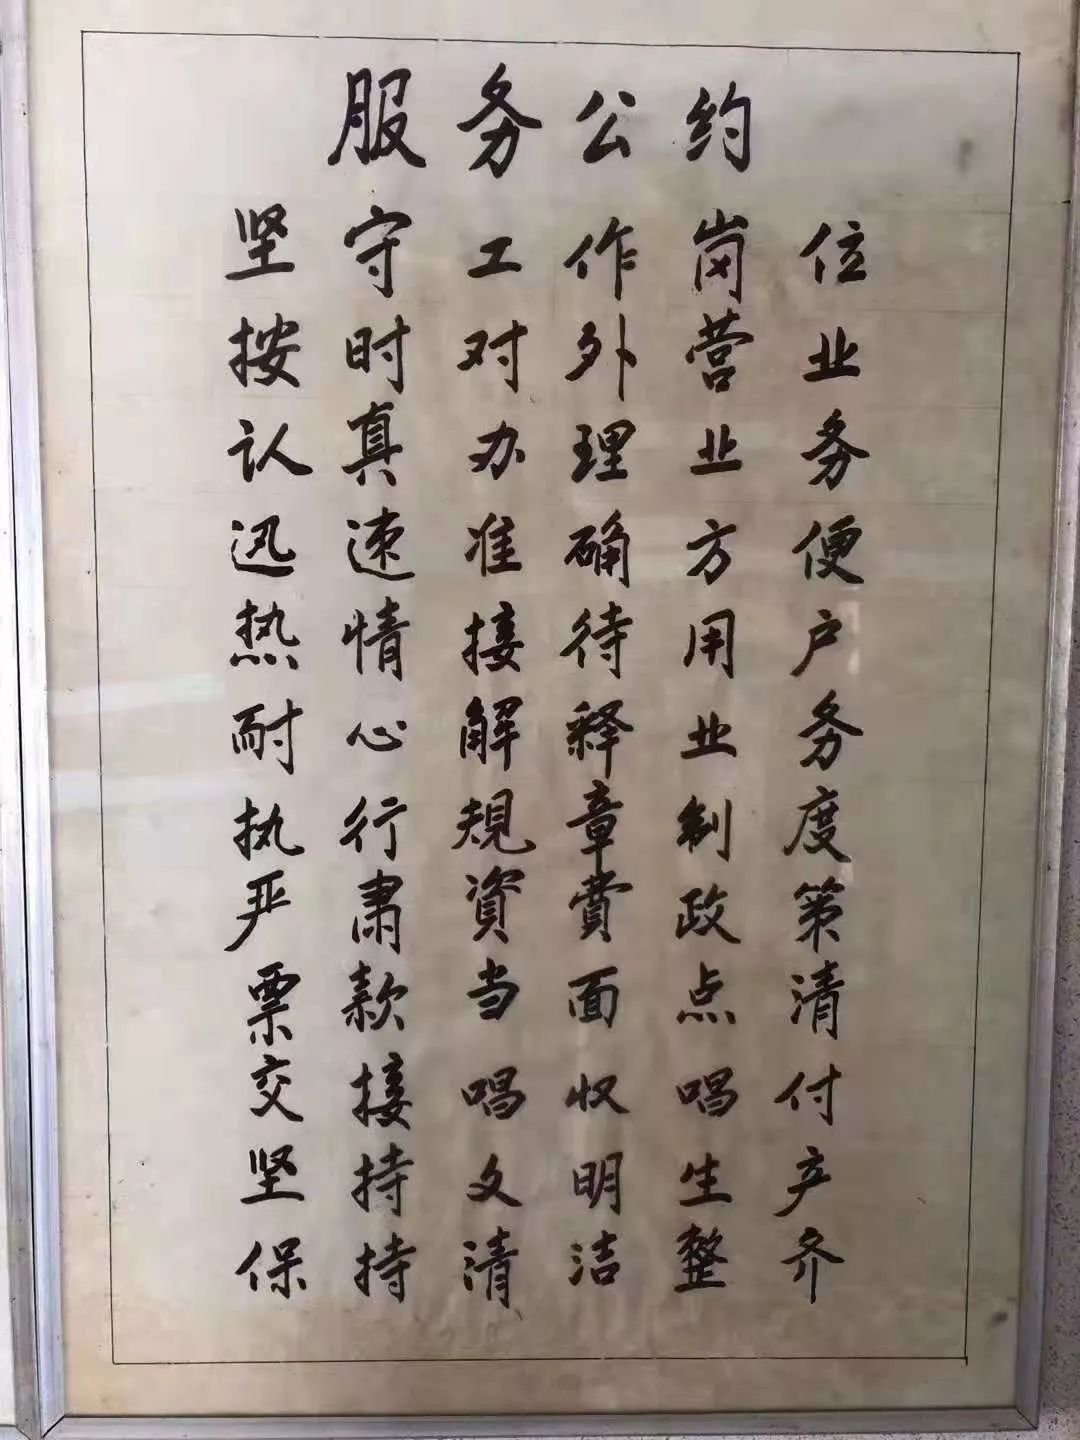 服务公约
坚守工作岗位
按时对外营业
认真办理业务
迅速准确方便
热情接待用户
耐心解释业务
执行规章制度
严肃資費政策
票款当面点清
交接唱收唱付
坚持文明生产
保持清洁整齐